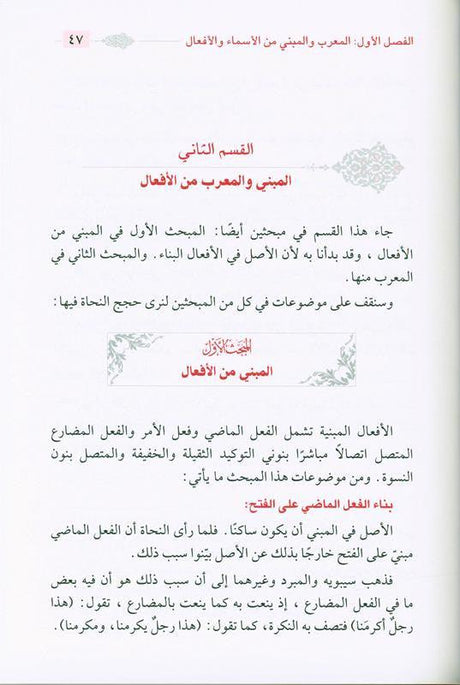 الفصل الأول: المعرب والمبني من الأسماء والأفعال
٤٧
القسم الثاني
المبني والمعرب من الأفعال
جاء هذا القسم في مبحثين أيضًا: المبحث الأول في المبني من
الأفعال ، وقد بدأنا به لأن الأصل في الأفعال البناء. والمبحث الثاني في
المعرب منها.
وسنقف على موضوعات في كل من المبحثين لنرى حجج النحاة فيها:
المبحث الأول
المبني من الأفعال
الأفعال المبنية تشمل الفعل الماضي وفعل الأمر والفعل المضارع
المتصل اتصالًا مباشرًا بنوني التوكيد الثقيلة والخفيفة والمتصل بنون
النسوة. ومن موضوعات هذا المبحث ما يأتي:
بناء الفعل الماضي على الفتح:
الأصل في المبني أن يكون ساكنًا. فلما رأى النحاة أن الفعل الماضي
مبنيّ على الفتح خارجًا بذلك عن الأصل بيّنوا سبب ذلك.
فذهب سيبويه والمبرد وغيرهما إلى أن سبب ذلك هو أن فيه بعض
ما في الفعل المضارع ، إذ ينعت به كما ينعت بالمضارع ، تقول: (هذا
رجلٌ أكرمَنا) فتصف به النكرة، كما تقول: (هذا رجلٌ يكرمنا، ومكرمنا).